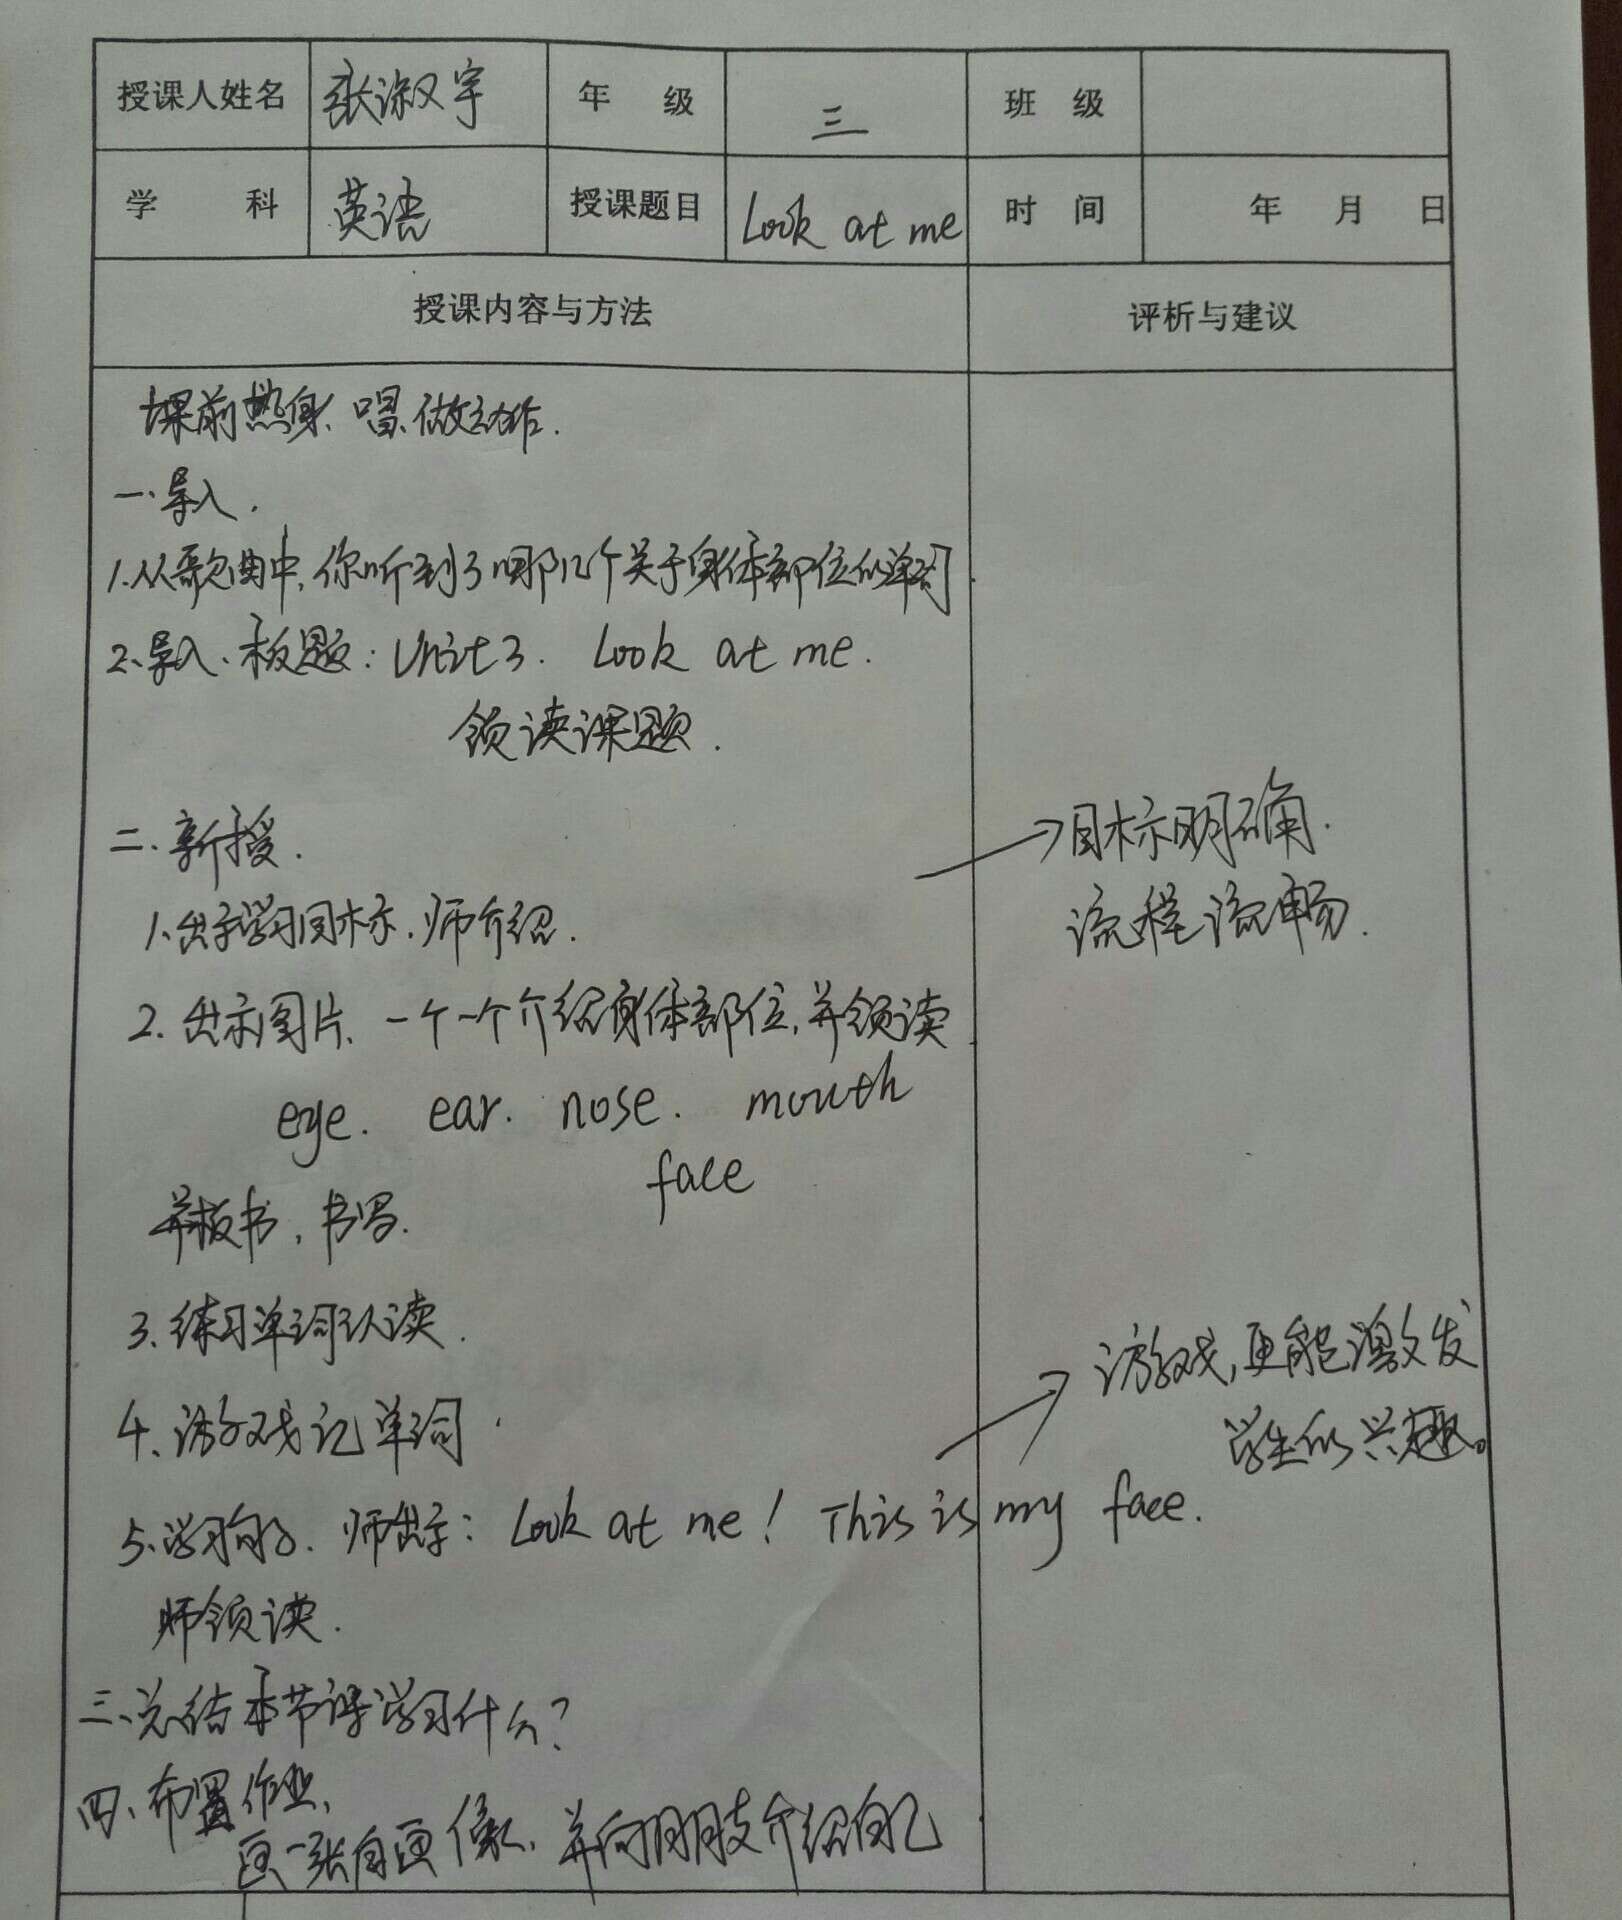 授课人姓名 张淑宇 年 级 三 班 级
学 科 英语 授课题目 Look at me 时 间 年 月 日
授课内容与方法 评析与建议
课前热身、唱、做动作.
一、导入.
1.从歌曲中,你听到了哪几个关于身体部位的单词
2.导入、板题: Unit 3. Look at me.
领读课题.
二、新授.
→目标明确.
流程流畅.
1.出示学习目标,师介绍.
2.出示图片、一个一个介绍身体部位,并领读
eye. ear. nose. mouth
face
并板书,书写.
3.练习单词认读.
→游戏,更能激发
学生的兴趣。
4.游戏记单词.
5.学习句子.师出示: Look at me! This is my face.
师领读.
三、总结本节课学习什么?
四、布置作业、
画一张自画像、并向朋友介绍自己